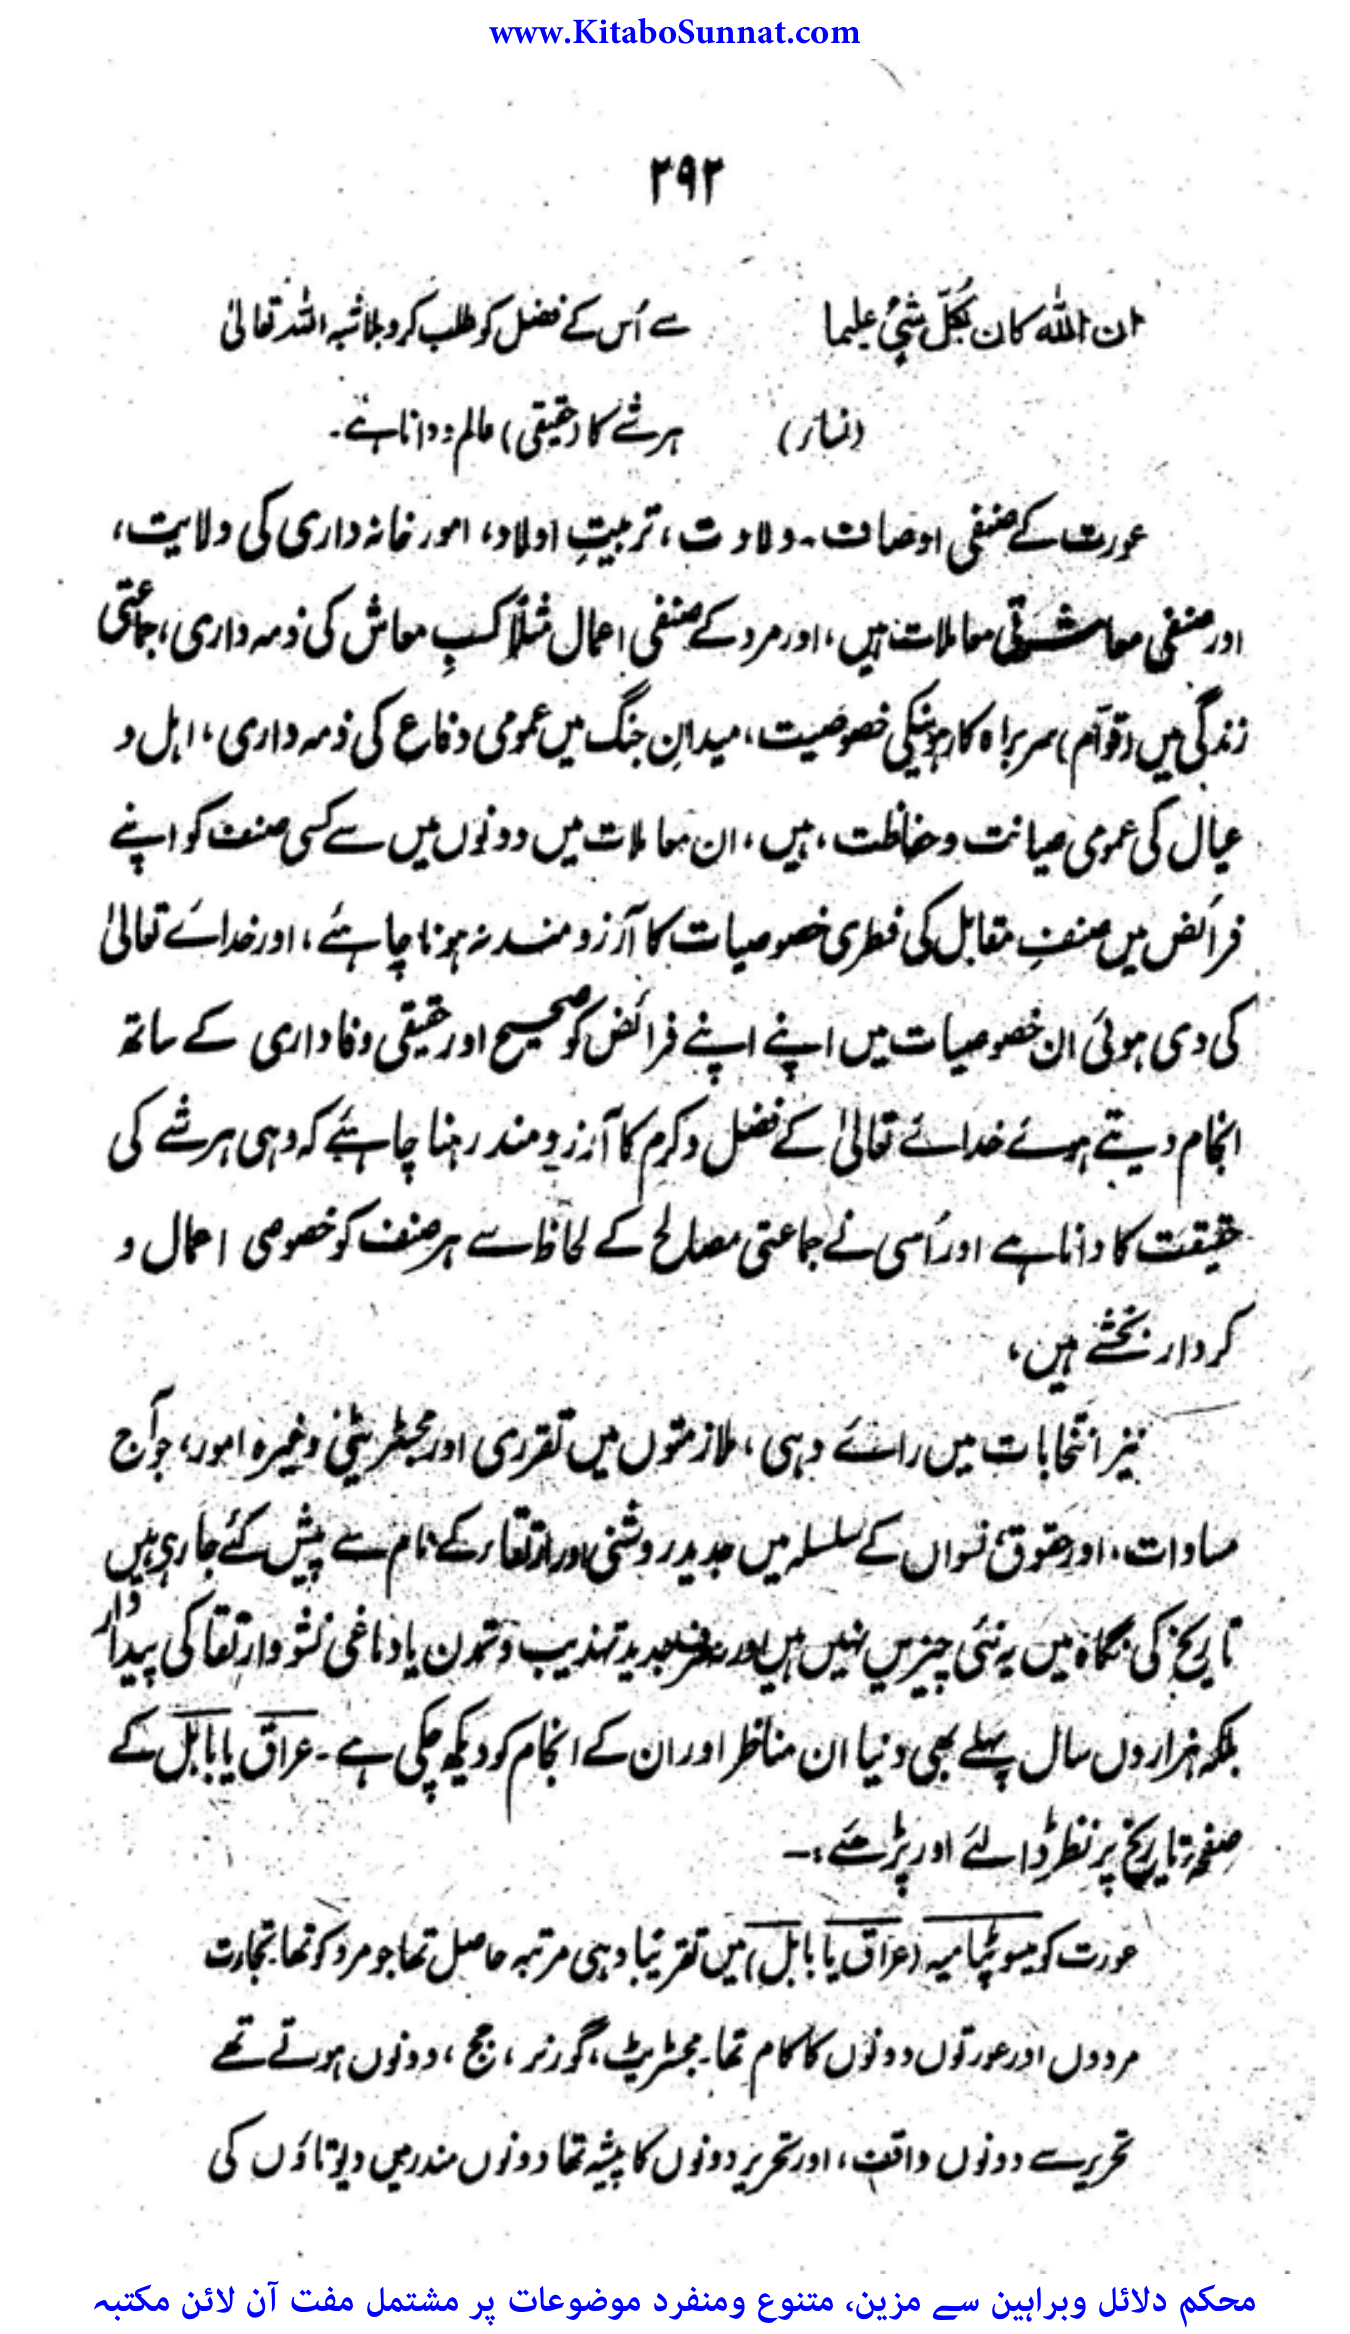 www.KitaboSunnat.com
۲۹۲
ان اللہ کان بکلّ شیءٍ علیما سے اُس کے فضل کو طلب کرو بلاشبہ اللہ تعالیٰ
(نساء) ہر شے کا (حقیقی) عالم و دانا ہے۔
عورت کے صنفی اوصاف۔ ولادت، تربیتِ اولاد، امور خانہ داری کی ولایت،
اور صنفی معاشرتی معاملات ہیں، اور مرد کے صنفی اعمال مثلاً کسبِ معاش کی ذمہ داری، جماعتی
زندگی میں (قوّام) سربراہ کار ہونیکی خصوصیت، میدانِ جنگ میں عمومی دفاع کی ذمہ داری، اہل و
عیال کی عمومی صیانت و حفاظت، ہیں، ان معاملات میں دونوں میں سے کسی صنف کو اپنے
فرائض میں صنفِ مقابل کی فطری خصوصیات کا آرزومند نہ ہونا چاہئے، اور خدائے تعالیٰ
کی دی ہوئی ان خصوصیات میں اپنے اپنے فرائض کو صحیح اور حقیقی وفاداری کے ساتھ
انجام دیتے ہوئے خدائے تعالیٰ کے فضل و کرم کا آرزومند رہنا چاہئے کہ وہی ہر شے کی
حقیقت کا دانا ہے اور اُسی نے جماعتی مصالح کے لحاظ سے ہر صنف کو خصوصی اعمال و
کردار بخشے ہیں،
نیز انتخابات میں رائے دہی، ملازمتوں میں تقرری اور مجسٹریٹی وغیرہ امور، جو آج
مساوات، اور حقوق نسواں کے سلسلہ میں جدید روشنی اور ارتقاء کے نام سے پیش کئے جا رہے ہیں
تاریخ کی نگاہ میں یہ نئی چیزیں نہیں ہیں اور نہ صرف جدید تہذیب و تمدن یا دماغی نشو وارتقا کی پیداوار
بلکہ ہزاروں سال پہلے بھی دنیا ان مناظر اور ان کے انجام کو دیکھ چکی ہے۔ عراق یا بابل کے
صفحہ تاریخ پر نظر ڈالئے اور پڑھئے،۔
عورت کو میسوپٹامیہ (عراق یا بابل) میں تقریباً وہی مرتبہ حاصل تھا جو مرد کو تھا۔ تجارت
مردوں اور عورتوں دونوں کا کام تھا۔ مجسٹریٹ، گورنر، جج، دونوں ہوتے تھے
تحریر سے دونوں واقف، اور تحریر دونوں کا پیشہ تھا دونوں مندر میں دیوتاؤں کی
محکم دلائل وبراہین سے مزین، متنوع ومنفرد موضوعات پر مشتمل مفت آن لائن مکتبہ